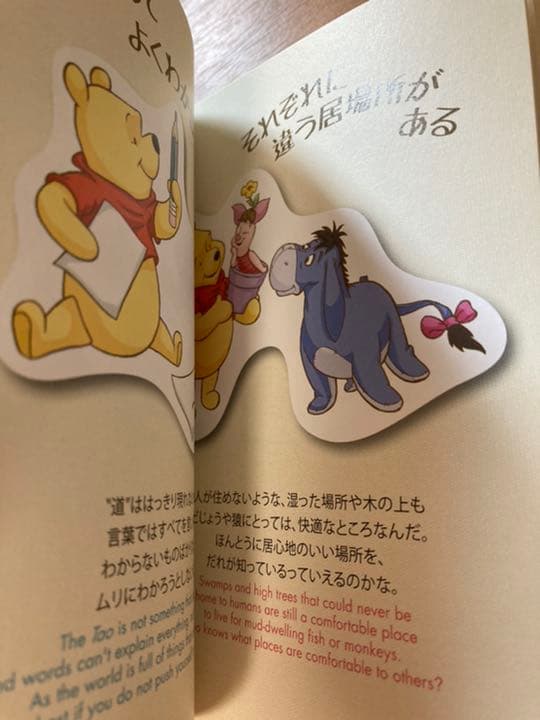 て
よくわか
"道"ははっきり現れ
言葉ではすべてを
わからないものばか
ムリにわかろうとしな
The Tao is not something
words can't explain everything
As the world is full of things
if you do not push
それぞれに
違う居場所が
ある
人が住めないような、湿った場所や木の上も
どじょうや猿にとっては、快適なところなんだ。
ほんとうに居心地のいい場所を、
だれが知っているっていえるのかな。
Swamps and high trees that could never be
home to humans are still a comfortable place
to live for mud-dwelling fish or monkeys.
knows what places are comfortable to others?